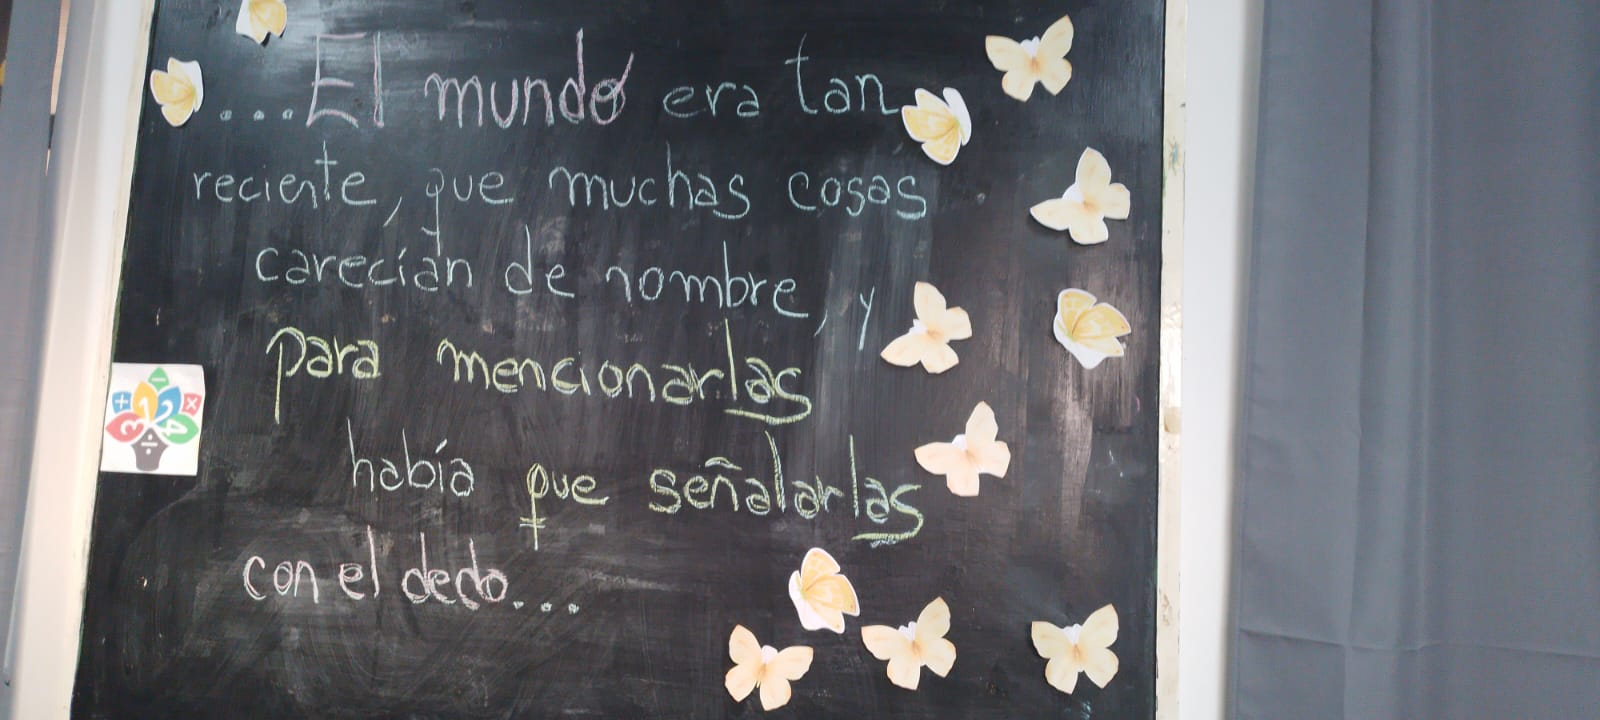 ....El mundo era tan
reciente, que muchas cosas
carecían de nombre, y
para mencionarlas
había que señalarlas
con el dedo...